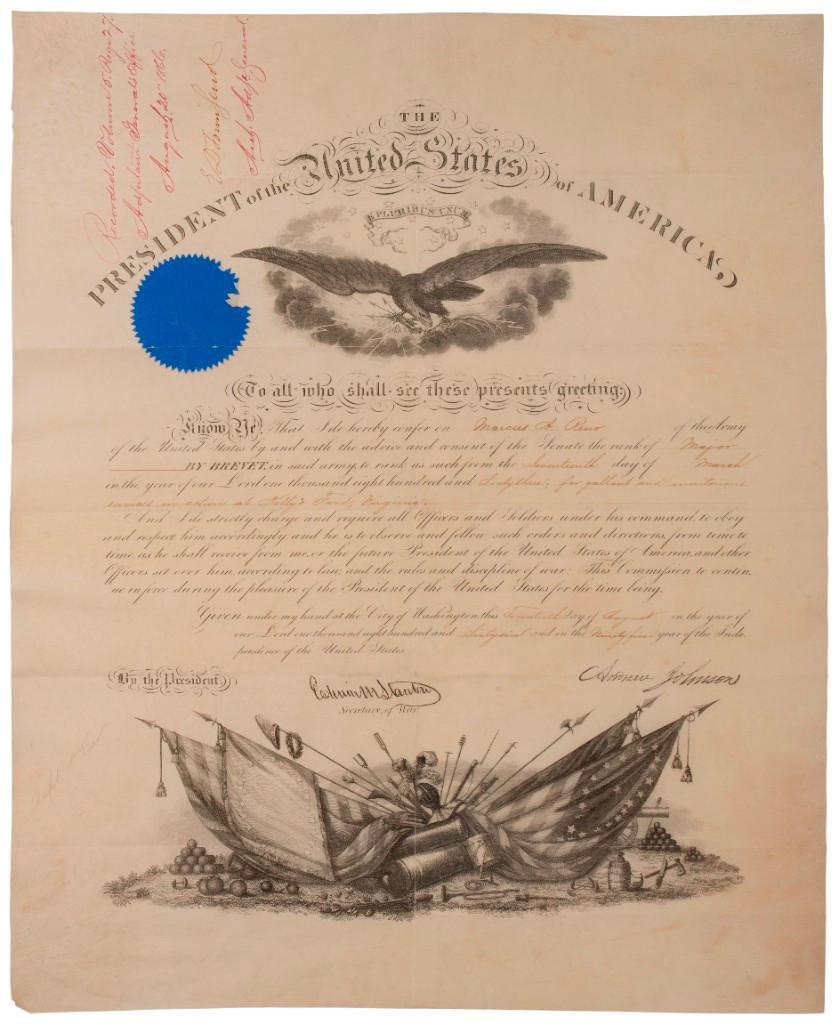 Recorded, Volume 8, Page 27
Adjutant General's Office
August 20th 1866.
E D Townsend
Asst. Adjt. General.
THE
PRESIDENT of the United States of AMERICA,
E PLURIBUS UNUM
To all who shall see these presents greeting:
Know Ye, That I do hereby confer on Marcus A. Reno of the Army
of the United States by and with the advice and consent of the Senate the rank of Major
BY BREVET, in said army, to rank as such from the Seventeenth day of March
in the year of our Lord one thousand eight hundred and Sixty three, for gallant and meritorious
services in action at Kelly's Ford, Virginia.
And I do strictly charge and require all Officers and Soldiers under his command, to obey
and respect him accordingly: and he is to observe and follow such orders and directions, from time to
time, as he shall receive from me, or the future President of the United States of America, and other
Officers set over him, according to law, and the rules and discipline of war: This Commission to contin-
ue in force during the pleasure of the President of the United States for the time being.
Given under my hand at the City of Washington, this Twentieth day of August in the year of
our Lord one thousand eight hundred and Sixty six and in the Ninety first year of the Inde-
pendence of the United States.
By the President,
Edwin M Stanton
Secretary of War.
Andrew Johnson